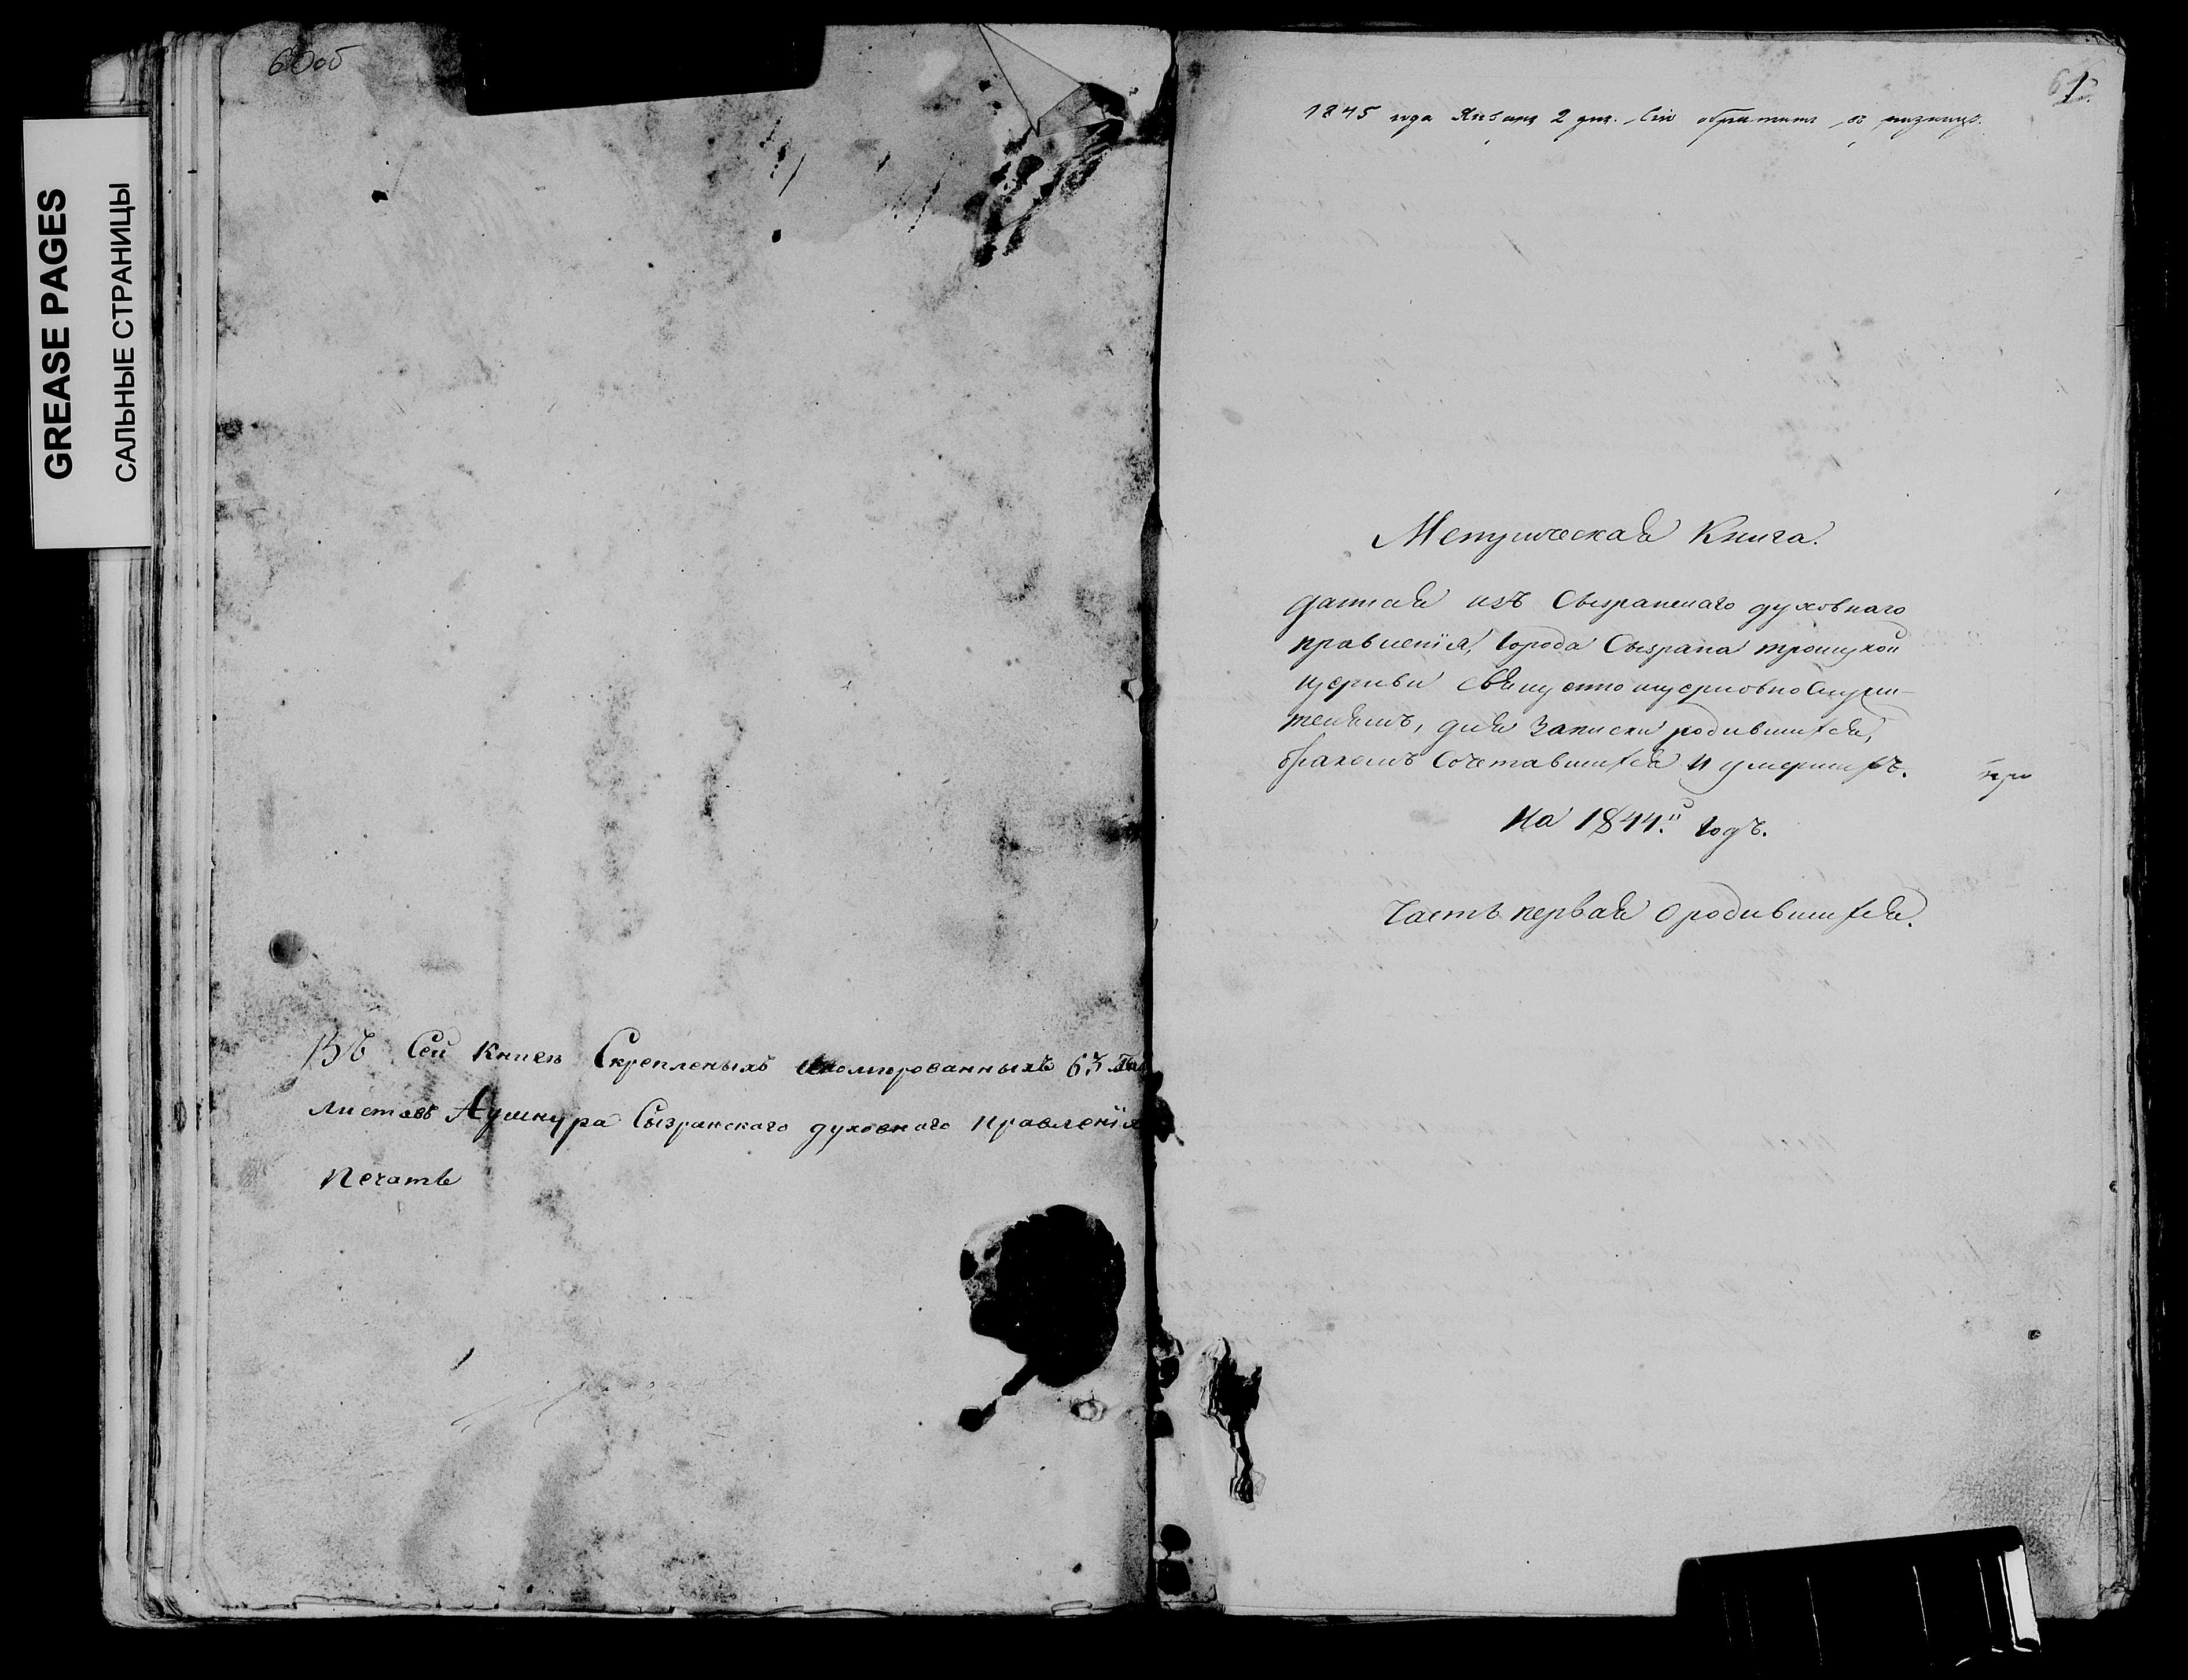 GREASE PAGES
САЛЬНЫЕ СТРАНИЦЫ
60об
Въ Сей Книгѣ Скрепленыхъ номированныхъ 63
листовъ Ашнура Сызранскаго духовнаго правленія
печать
61
1845 года Января 2 дня. Сію въ ризницу.
Метрическая Книга.
данная изъ Сызранскаго духовнаго
правленія, города Сызрана троицкой
церкви священноцерковнослужи-
телямъ, для записки родившихся,
бракомъ сочетавшихся и умершихъ.
На 1844.й годъ.
Часть первая о родившихся.